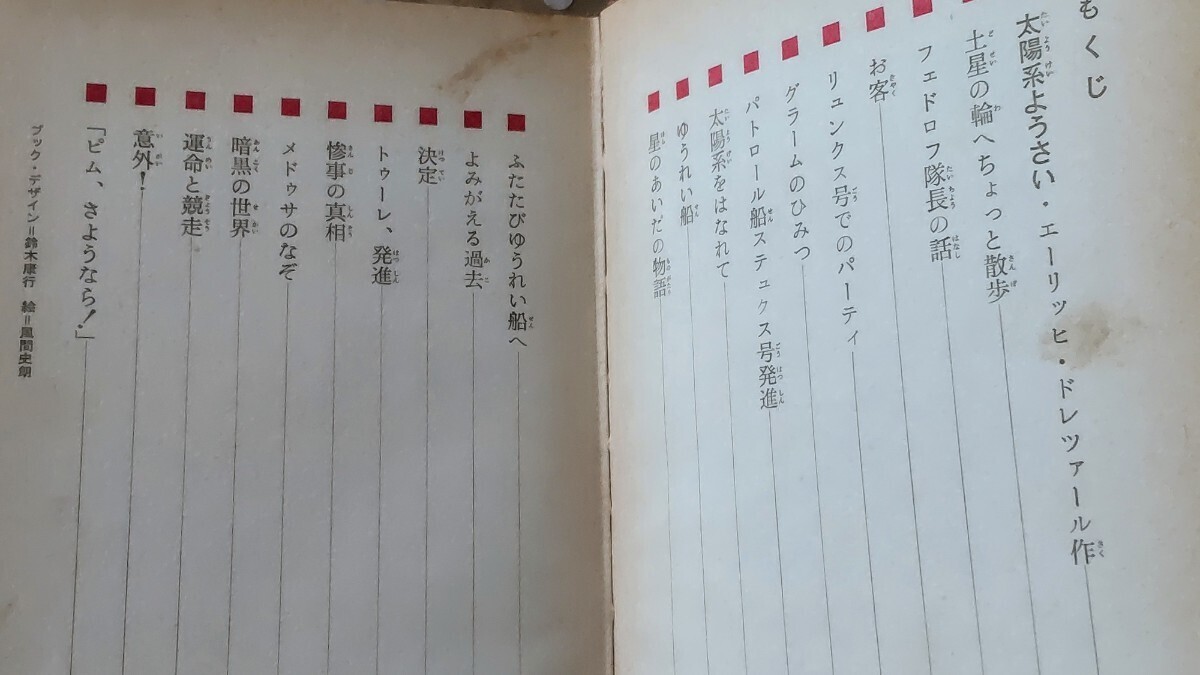 もくじ
太陽系ようさい・エーリッヒ・ドレツァール作
土星の輪へちょっと散歩
フェドロフ隊長の話
お客
リュンクス号でのパーティ
グラームのひみつ
パトロール船ステュクス号発進
太陽系をはなれて
ゆうれい船
星のあいだの物語
ふたたびゆうれい船へ
よみがえる過去
決定
トゥーレ、発進
惨事の真相
メドゥサのなぞ
暗黒の世界
運命と競走
意外!
「ピム、さようなら!」
ブック・デザイン=鈴木康行 絵=風間史朗